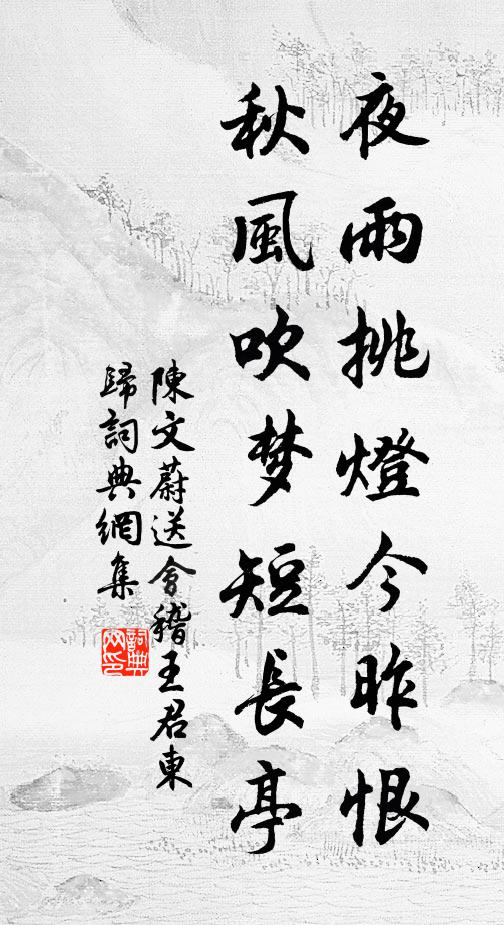 夜雨挑燈今昨恨
秋風吹梦短長亭
陳文蔚送会稽王君東
歸詞典網集
詞典
网印